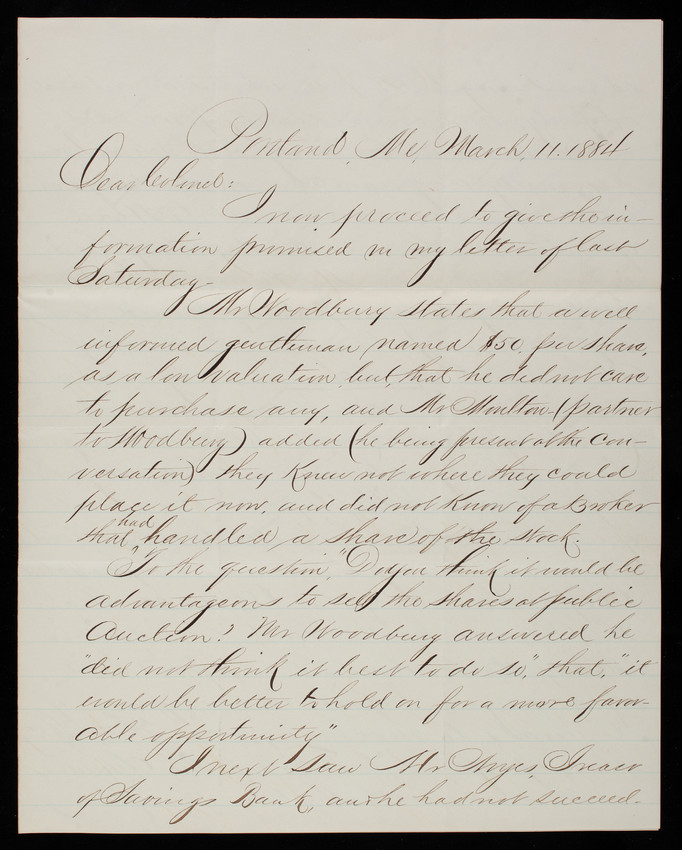 Portland, Me, March, 11. 1884
Dear Colonel:
I now proceed to give the in-
formation promised in my letter of last
Saturday-
Mr Woodbury states that a well
informed gentleman named $50. per share,
as a low valuation, but, that he did not care
to purchase any, and Mr Moulton (partner
to Woodbury) added (he being present at the con-
versation) they knew not where they could
place it now, and did not know of a Broker
that had handled a share of the stock.
To the question, "Do you think it would be
advantageous to sell the shares at public
Auction? Mr Woodbury answered he
"did not think it best to do so," that, "it
would be better to hold on for a more favor-
able opportunity"
I next saw Mr Noyes, Treasr
of Savings Bank, and he had not succeed-